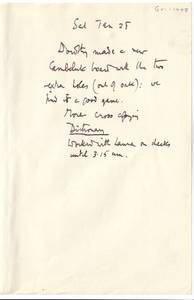 Sat Jan 25
Dorothy made a new
board with the two
extra holes (out of oak): we
find it a good game.
More cross
Dictionary
Worked with Laura on decks
until 3.15 am.